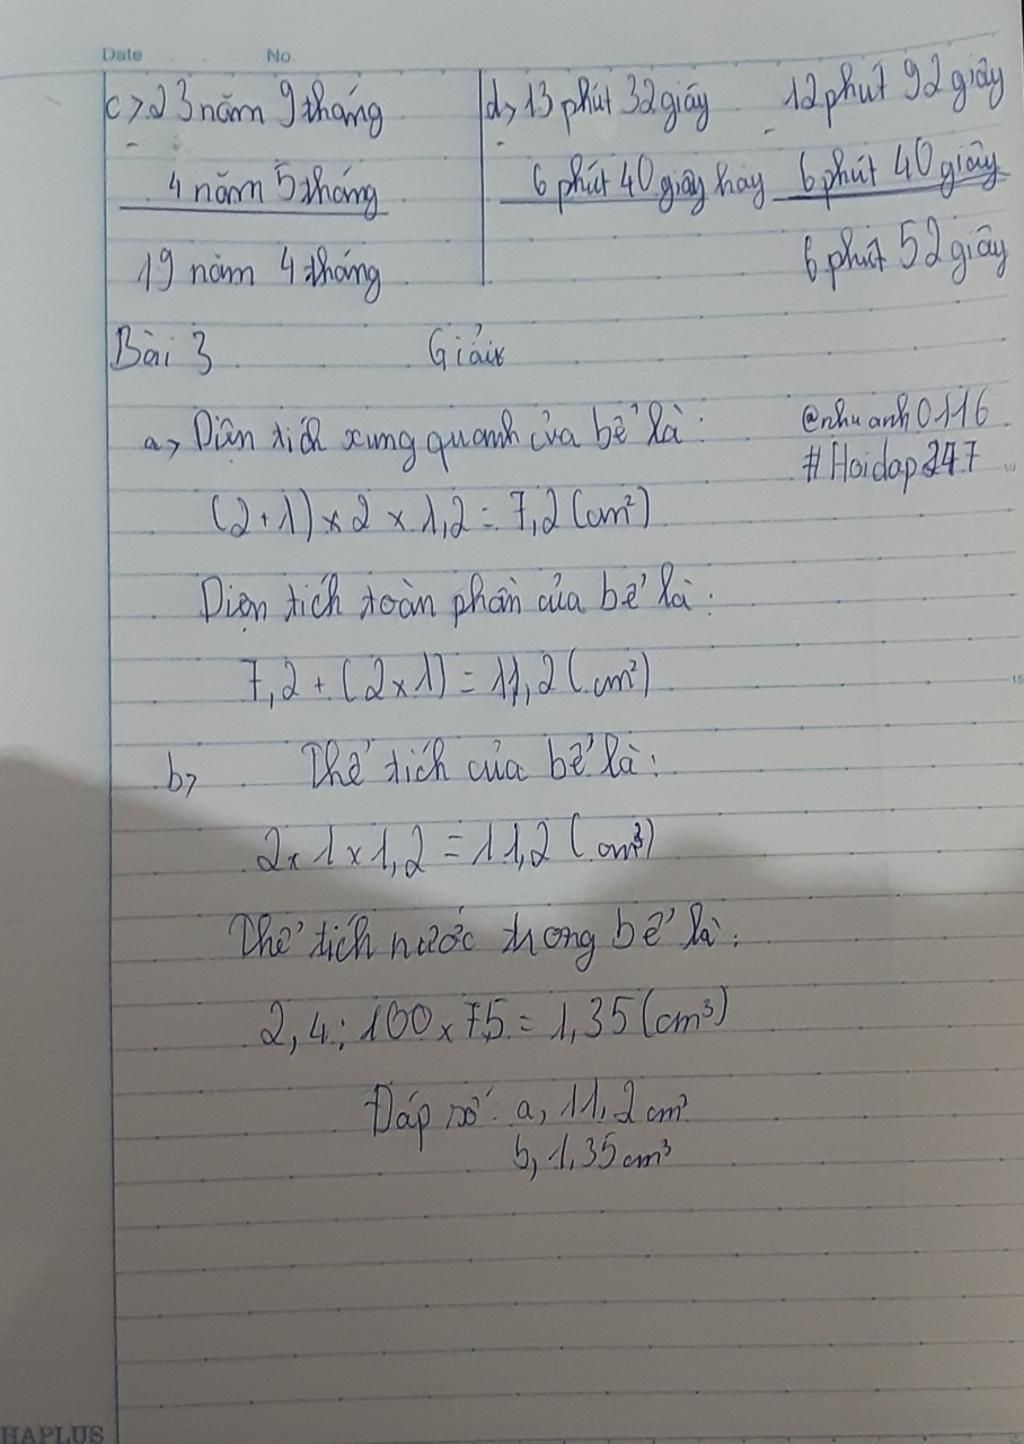 Date No
c> 23 năm 9 tháng
-
4 năm 5 tháng
19 năm 4 tháng
d> 13 phút 32 giây 12 phút 92 giây
- -
6 phút 40 giây hay 6 phút 40 giây
6 phút 52 giây
Bài 3 Giải
a> Diện tích xung quanh của bể là:
@nhuanh0116
#Hoidap247
(2+1) x 2 x 1,2 = 7,2 (cm²)
Diện tích toàn phần của bể là:
7,2 + (2x1) = 11,2 (cm²)
b> Thể tích của bể là:
2x 1 x 1,2 = 11,2 (cm³)
Thể tích nước trong bể là:
2,4 : 100 x 75 = 1,35 (cm³)
Đáp số: a, 11,2 cm²
b, 1,35 cm³
10
15
HAPLUS